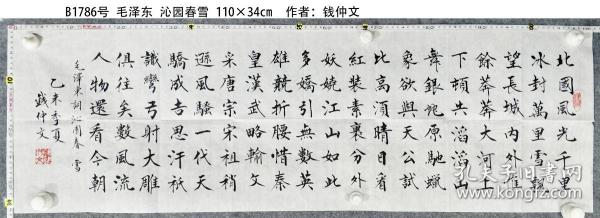 B1786号 毛泽东 沁园春雪 110×34cm 作者：钱仲文
北國風光千里
冰封萬里雪飄
望長城內外惟
餘莽莽大河上
下頓共滔滔山
舞銀蛇原馳蠟
象欲與天公試
比高須晴日看
紅裝素裹分外
妖嬈江山如此
多嬌引無數英
雄競折腰惜秦
皇漢武略輸文
采唐宗宋祖稍
遜風騷一代天
驕成吉思汗祇
識彎弓射大雕
俱往矣數風流
人物還看今朝
毛澤東詞沁園春 雪
乙未季夏
錢仲文